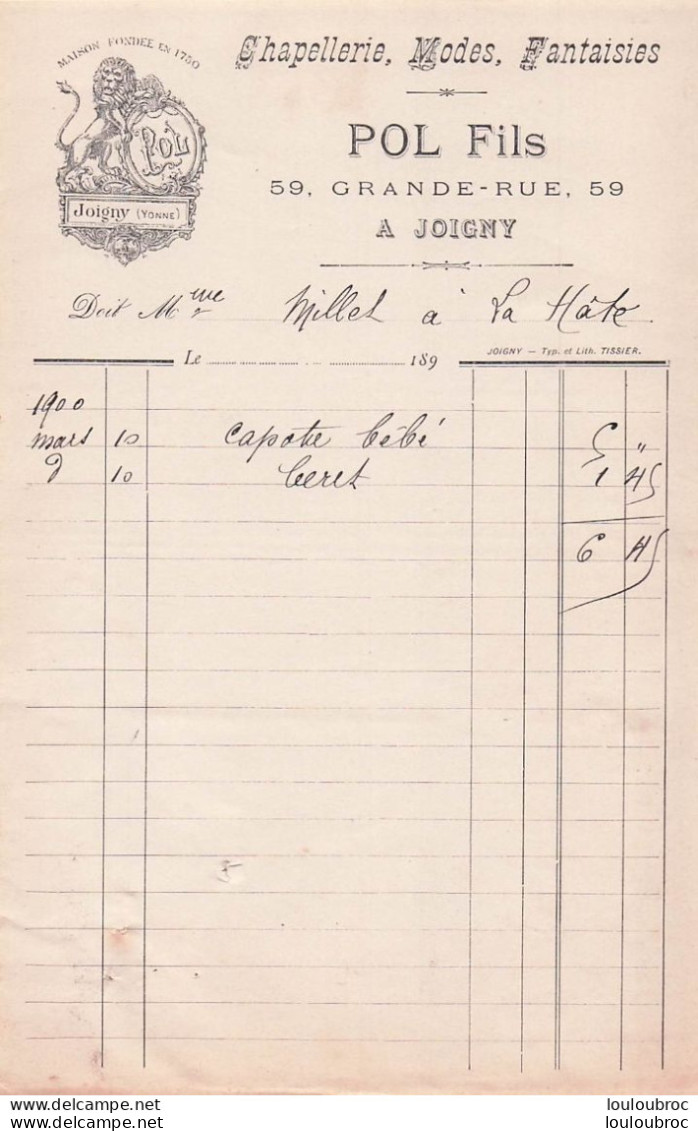 MAISON FONDÉE EN 1750
POL
Joigny (YONNE)
Chapellerie, Modes, Fantaisies
POL Fils
59, GRANDE-RUE, 59
A JOIGNY
Doit Mme Millet à La Hâte
Le ... 189
JOIGNY — Typ. et Lith. TISSIER.
1900
mars 10 capote bébé 5 "
d 10 beret 1 45
6 45
delcampe.net
louloubroc
louloubroc